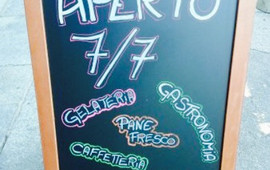 APERTO
7/7
GELATERIA
GASTRONOMIA
PANE
FRESCO
CAFFETTERIA